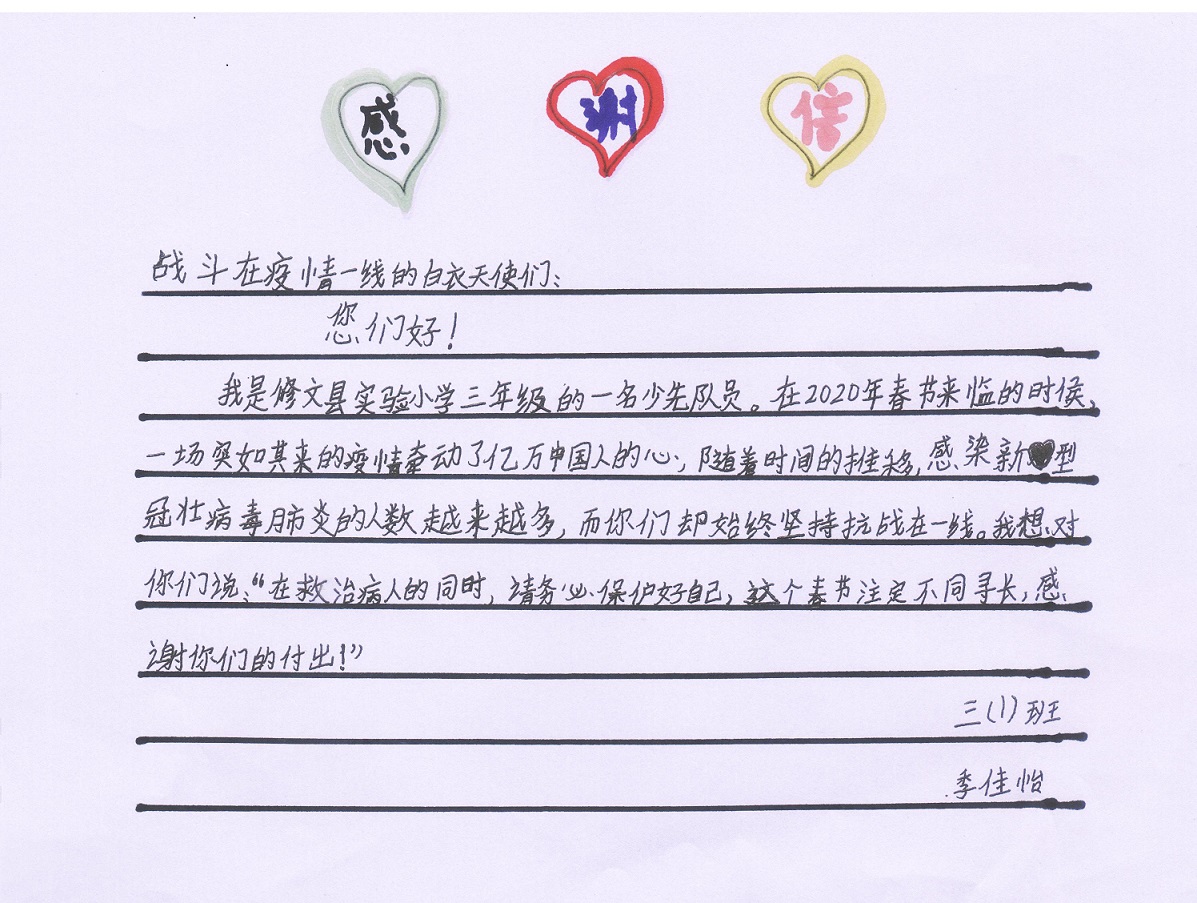 感谢信
战斗在疫情一线的白衣天使们：
您们好！
我是修文县实验小学三年级的一名少先队员。在2020年春节来临的时候，
一场突如其来的疫情牵动了亿万中国人的心，随着时间的推移，感染新型
冠壮病毒肺炎的人数越来越多，而你们却始终坚持抗战在一线。我想对
你们说：“在救治病人的同时，请务必保护好自己，这个春节注定不同寻长，感
谢你们的付出！”
三(1)班
季佳怡